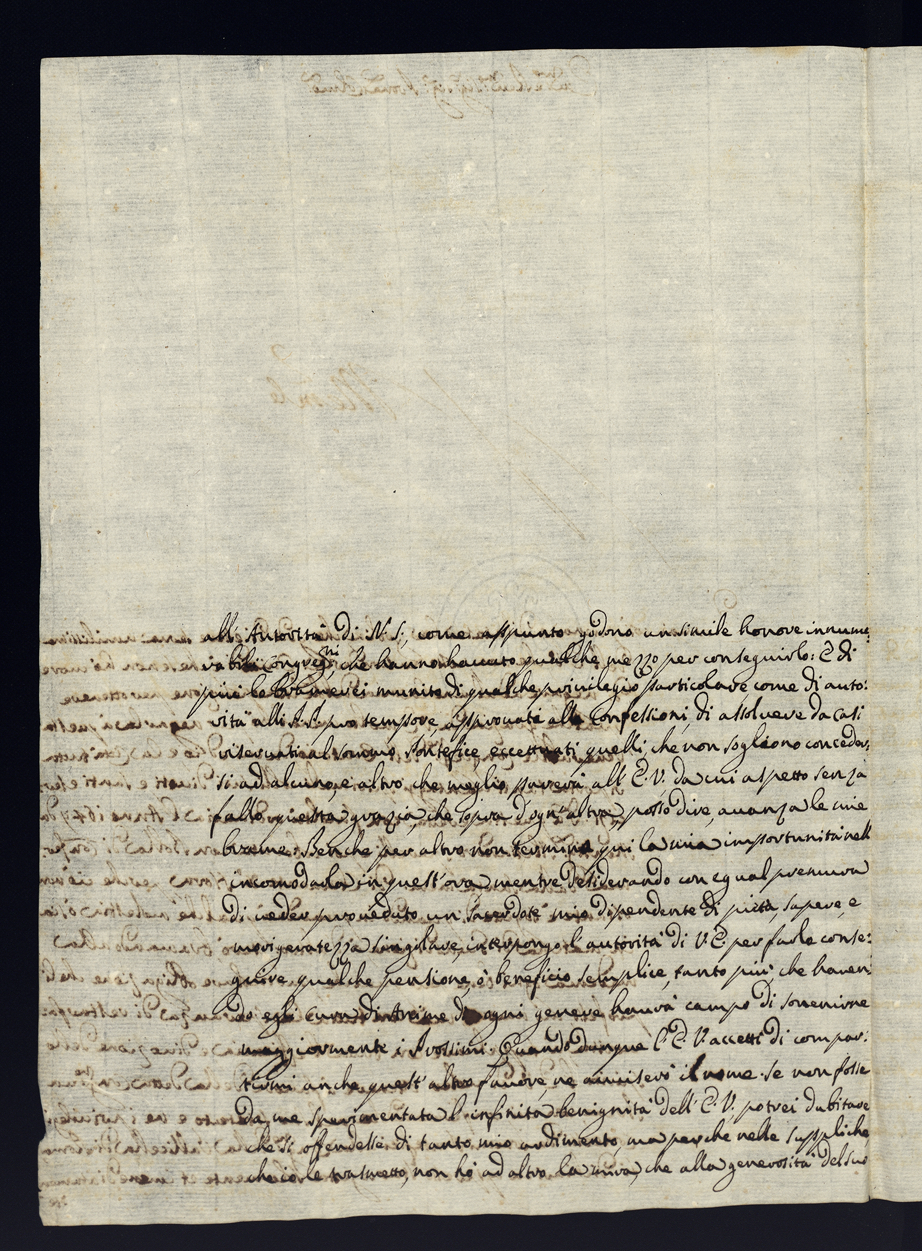 all'Autorità di N. S., come appunto godono un simile honore innume:
rabili Congreg.ni che hanno hauuto qualche mezzo per conseguirlo: E di
più lo bramerei munito di qualche privilegio particolare come di auto:
rità alli pro tempore, approuati alle Confessioni, di assoluere da casi
riseruati al sommo Pontefice eccettuati quelli, che non sogliono conceder:
si ad alcuno, e altro che meglio parerà all'E. V. da cui aspetto senza
fallo questa grazia, che sopra d'ogn'altra, posso dire, auanza le mie
brame. Benche per altro non termina qui la mia importunità nell'
incomodarla in quest'ora, mentre desiderando con egual premura
di ueder proueduto un Sacerdote mio dipendente di pietà, sapere, e
morigeratezza singolare, interpongo l'autorità di V. E. per farle conse:
guire qualche pensione, ò beneficio semplice, tanto più che hauen:
do egli cura di Anime di ogni genere haurà campo di souenire
maggiormente i Prossimi. Quando dunque l'E. V. accetti di compar:
tirmi anche quest'altro fauore, ne auiiserò il nome. se non fosse
da me sperimentata l'infinita benignità dell'E. V. potrei dubitare
che si offendesse di tanto mio ardimento, ma perche nelle suppliche,
che io le trasmetto, non hò ad altro la mira, che alla generosità del suo